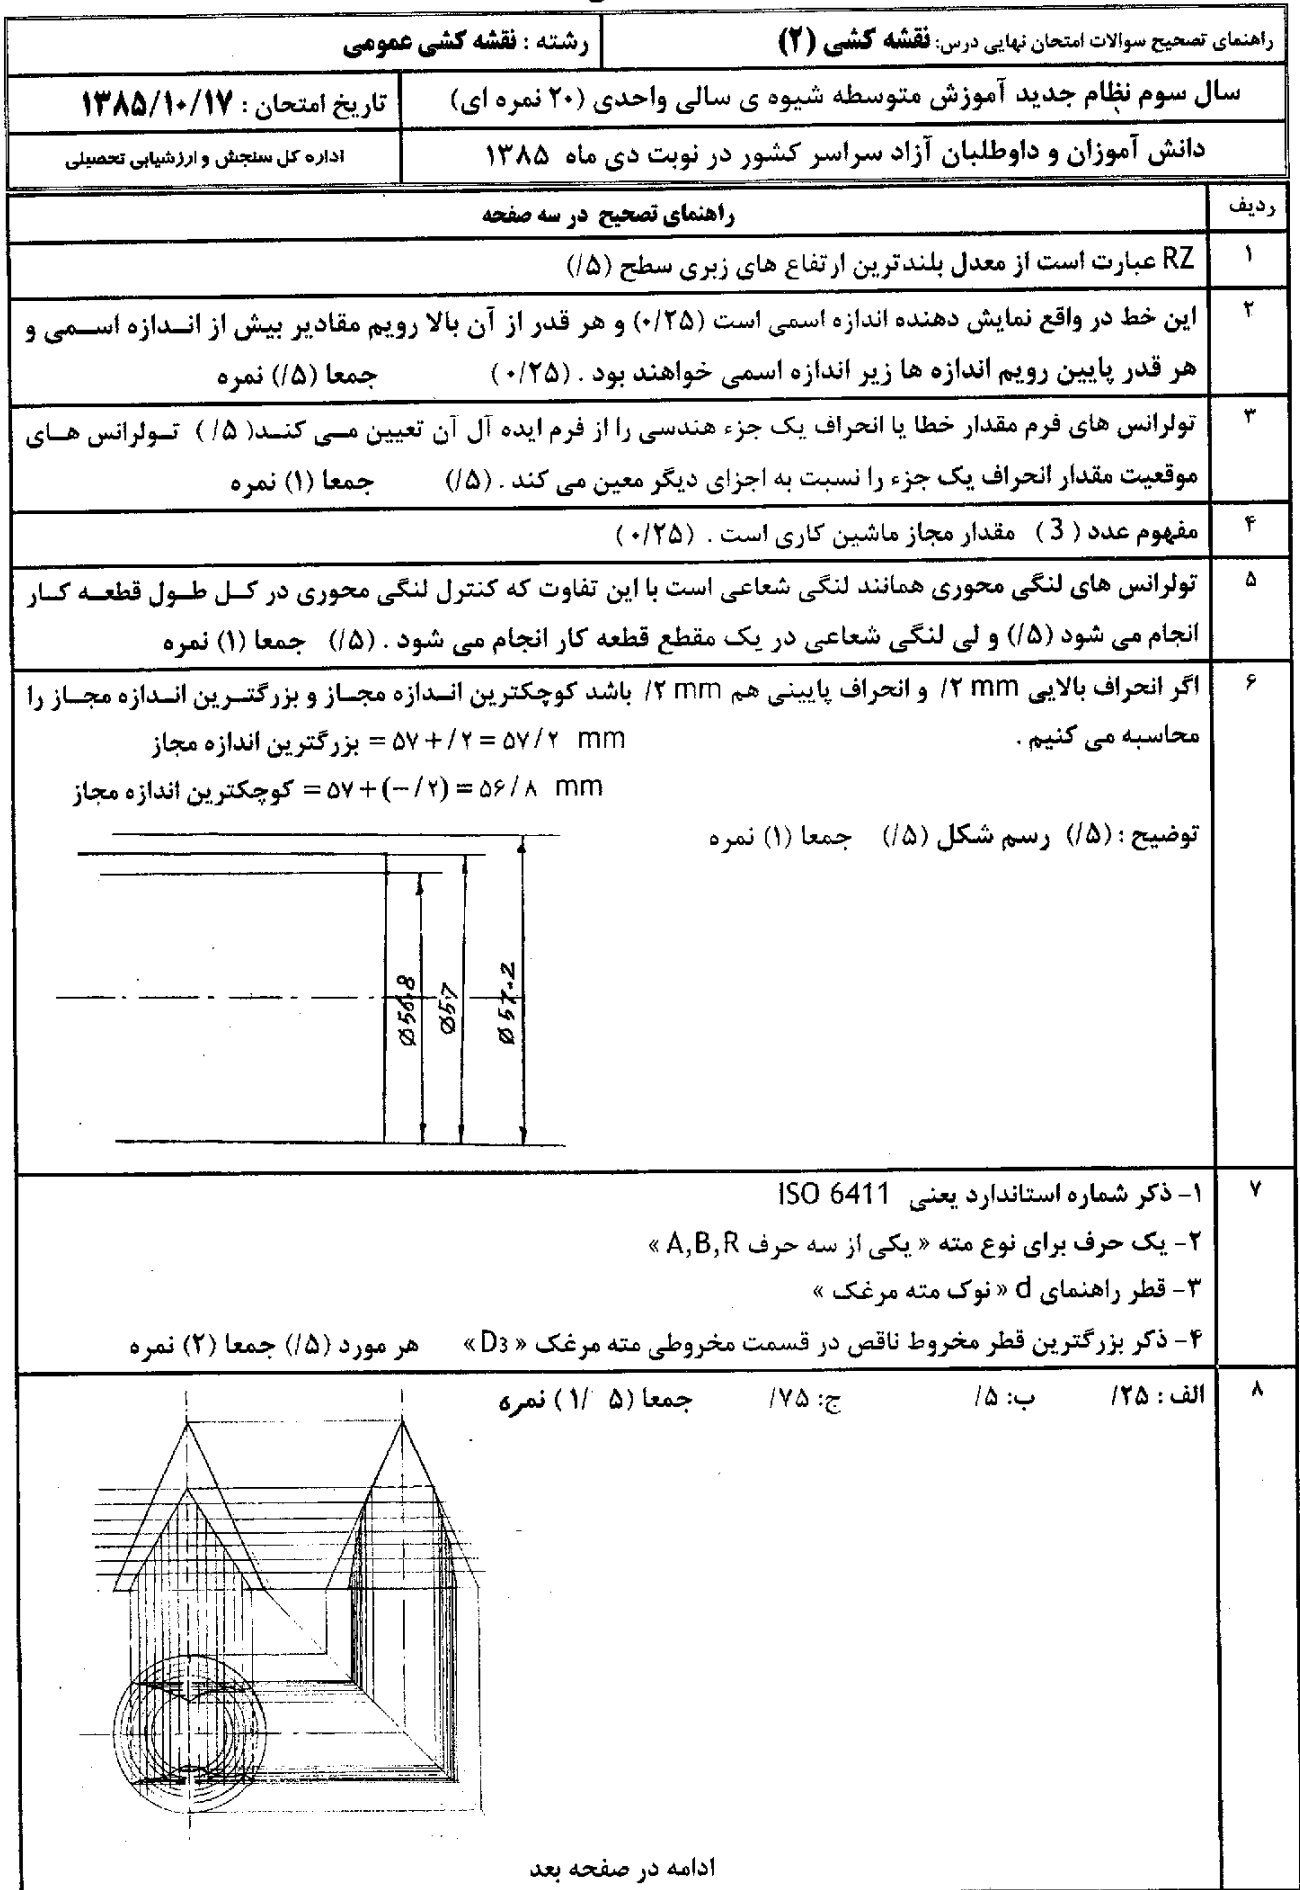 راهنمای تصحیح سوالات امتحان نهایی درس: نقشه کشی (۲)
رشته : نقشه کشی عمومی
سال سوم نظام جدید آموزش متوسطه شیوه ی سالی واحدی (۲۰ نمره ای)
تاریخ امتحان : ۱۳۸۵/۱۰/۱۷
دانش آموزان و داوطلبان آزاد سراسر کشور در نوبت دی ماه ۱۳۸۵
اداره کل سنجش و ارزشیابی تحصیلی
ردیف
راهنمای تصحیح در سه صفحه
۱
RZ عبارت است از معدل بلندترین ارتفاع های زبری سطح (۵/)
۲
این خط در واقع نمایش دهنده اندازه اسمی است (۰/۲۵) و هر قدر از آن بالا رویم مقادیر بیش از انــدازه اســمی و
هر قدر پایین رویم اندازه ها زیر اندازه اسمی خواهند بود . (۰/۲۵) جمعا (۵/) نمره
۳
تولرانس های فرم مقدار خطا یا انحراف یک جزء هندسی را از فرم ایده آل آن تعیین مــی کنــد( ۵/ ) تــولرانس هــای
موقعیت مقدار انحراف یک جزء را نسبت به اجزای دیگر معین می کند . (۵/) جمعا (۱) نمره
۴
مفهوم عدد ( 3 ) مقدار مجاز ماشین کاری است . (۰/۲۵)
۵
تولرانس های لنگی محوری همانند لنگی شعاعی است با این تفاوت که کنترل لنگی محوری در کــل طــول قطعــه کــار
انجام می شود (۵/) و لی لنگی شعاعی در یک مقطع قطعه کار انجام می شود . (۵/) جمعا (۱) نمره
۶
اگر انحراف بالایی ۲ mm/ و انحراف پایینی هم ۲ mm/ باشد کوچکترین انــدازه مجــاز و بزرگتــرین انــدازه مجــاز را
محاسبه می کنیم .
بزرگترین اندازه مجاز = ۵۷ + /۲ = ۵۷/۲ mm
کوچکترین اندازه مجاز = ۵۷ + (− /۲) = ۵۶/۸ mm
توضیح : (۵/) رسم شکل (۵/) جمعا (۱) نمره
Ø56.8
Ø57
Ø57.2
۷
۱- ذکر شماره استاندارد یعنی ISO 6411
۲- یک حرف برای نوع مته « یکی از سه حرف A,B,R »
۳- قطر راهنمای d « نوک مته مرغک »
۴- ذکر بزرگترین قطر مخروط ناقص در قسمت مخروطی مته مرغک « D3 » هر مورد (۵/) جمعا (۲) نمره
۸
الف : ۲۵/ ب: ۵/ ج: ۷۵/ جمعا (۵ /۱) نمره
ادامه در صفحه بعد